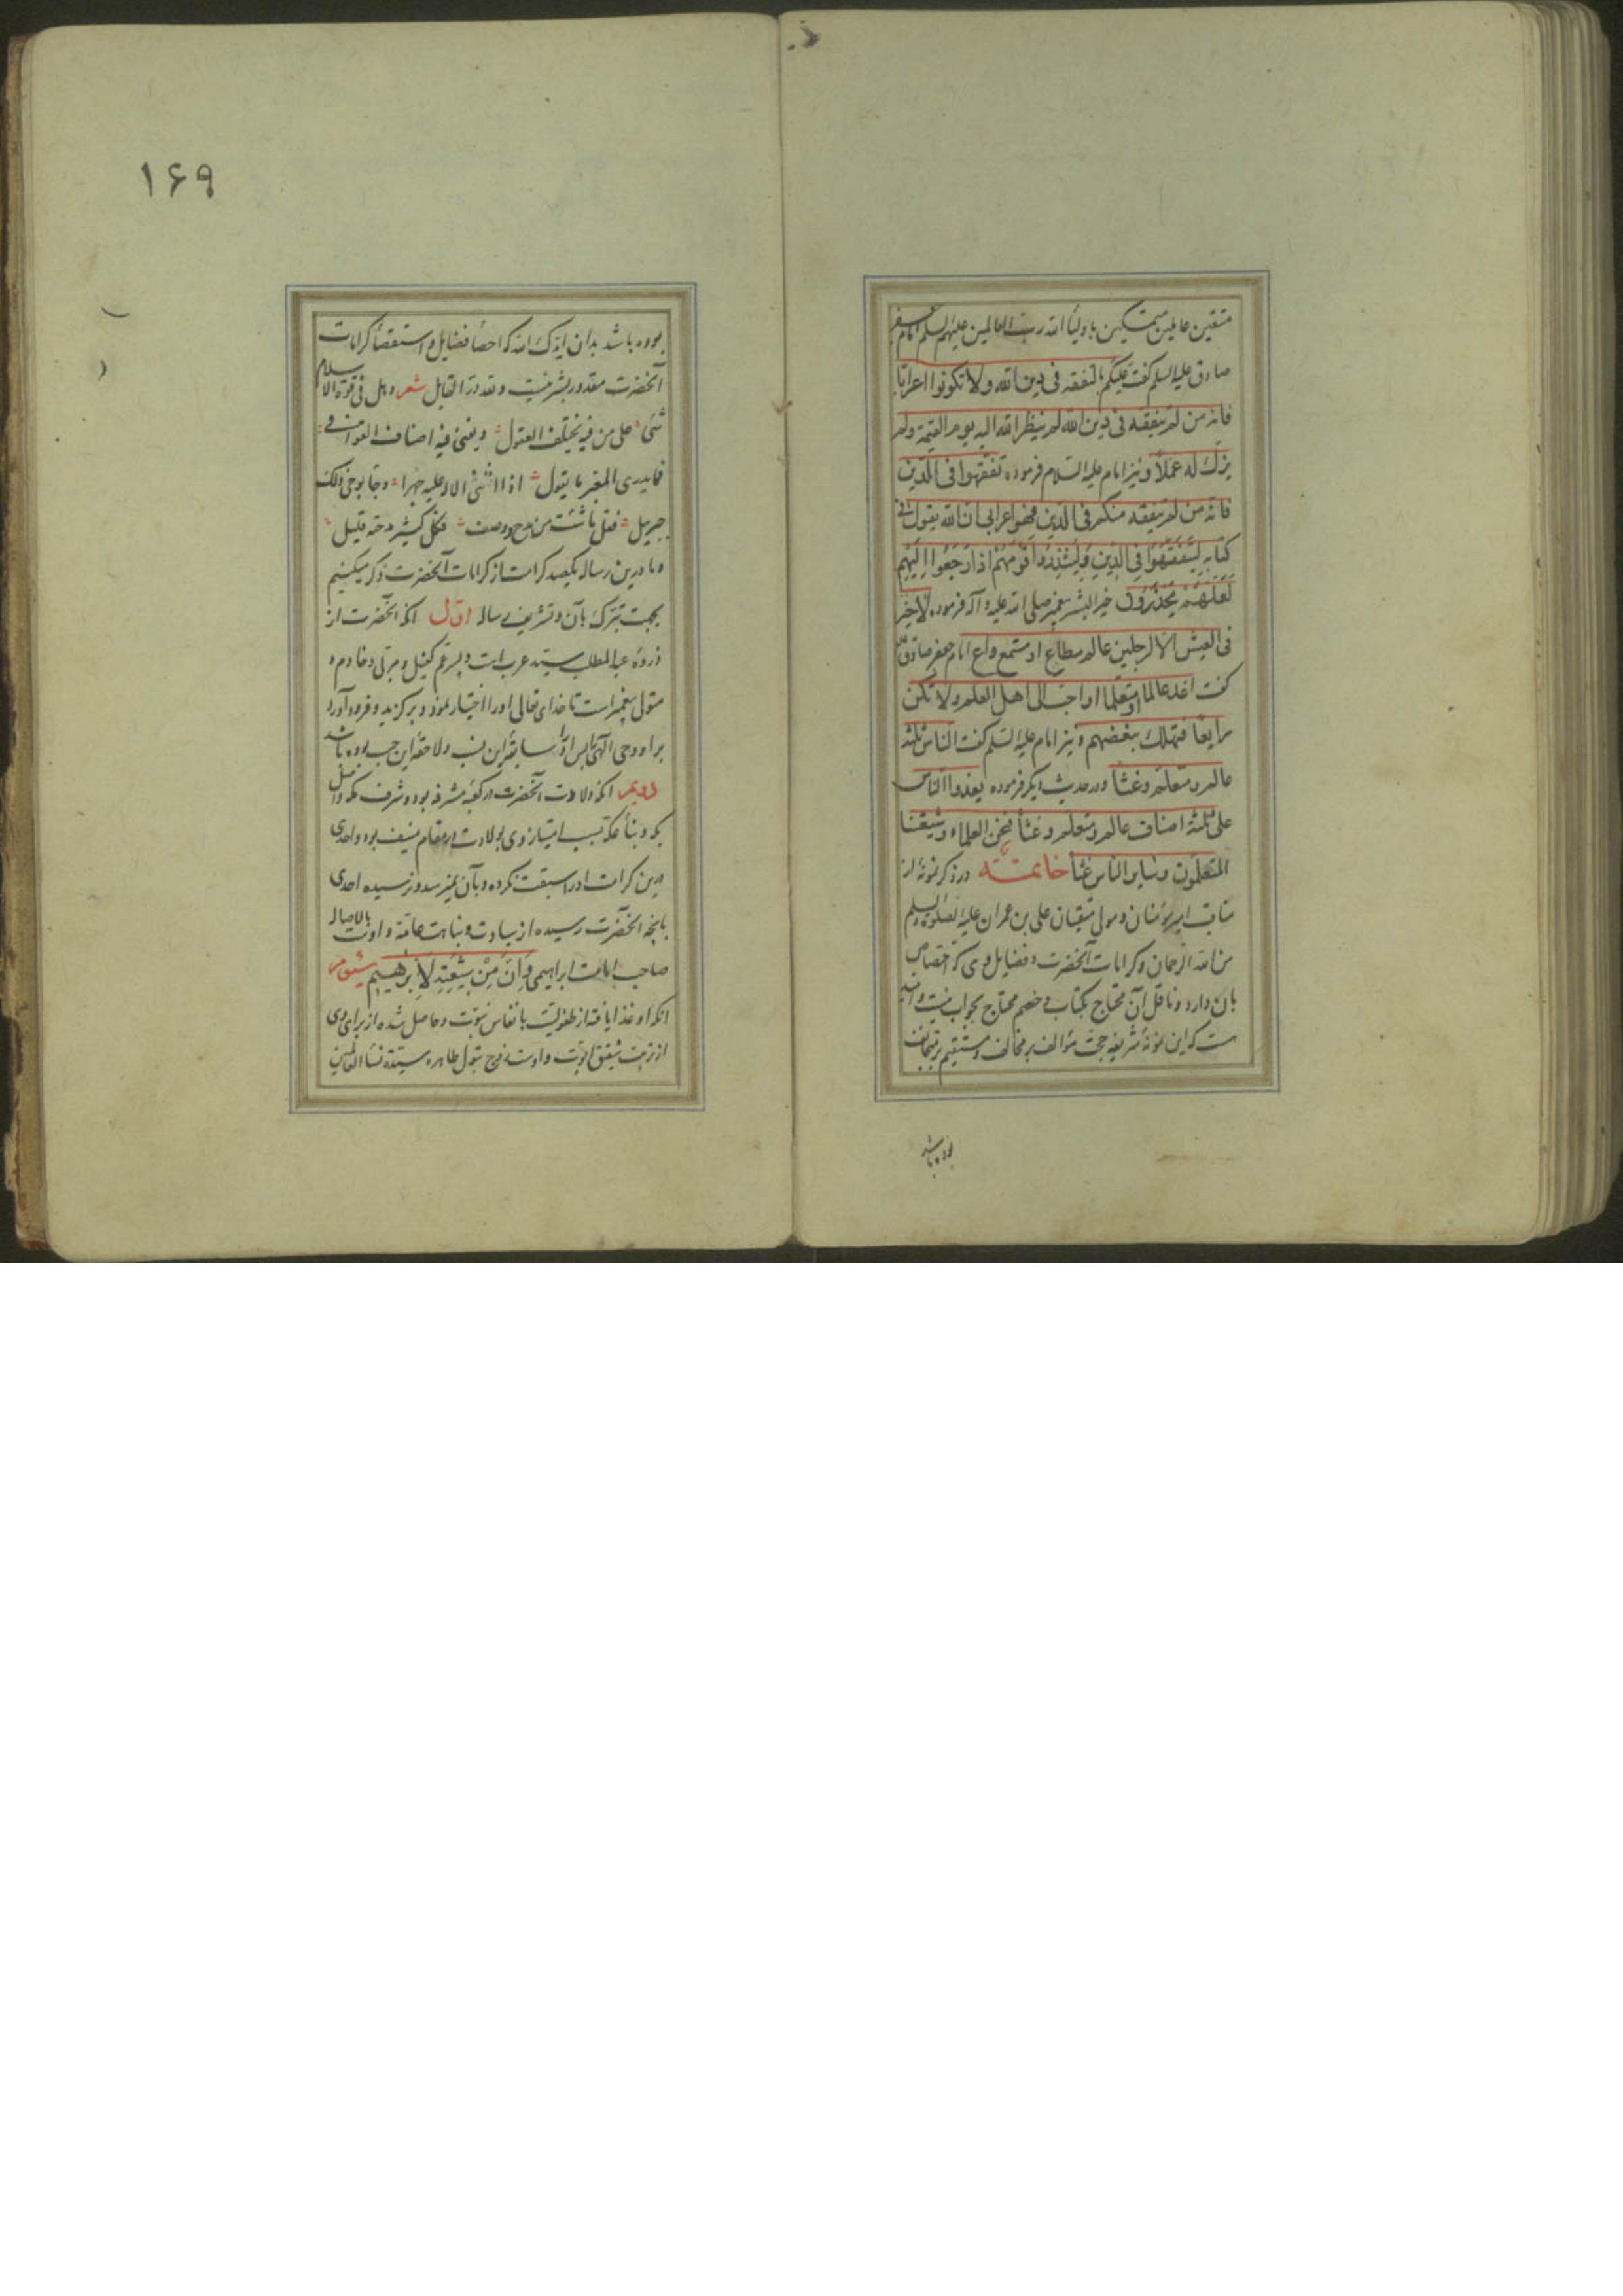 متقین عاملین متمسکین باولیاء الله رب العالمین علیهم السلم امام جعفر
صادق علیه السلم گفت علیکم بالتفقه فی دین الله ولا تکونوا اعرابا
فانه من لم یتفقه فی دین الله لم ینظر الله الیه یوم القیمة ولم
یزک له عملا و نیز امام علیه السلام فرموده تفقهوا فی الدین
فانه من لم یتفقه منکم فی الدین فهو اعرابی ان الله یقول فی
کتابه لِیَتَفَقَّهُوا فِی الدِّینِ وَلِیُنْذِرُوا قَوْمَهُمْ اِذَا رَجَعُوا اِلَیْهِم
لَعَلَّهُمْ یَحْذَرُونَ خیر البشر پیغمبر صلی الله علیه و آله فرموده لا خیر
فی العیش الا لرجلین عالم مطاع او مستمع واع امام جعفر صادق
گفت اغد عالما او متعلما او احب الی اهل العلم ولا تکن
رابعا فتهلک ببغضهم و نیز امام علیه السلم گفت الناس ثلثه
عالم و متعلم و غثا و در حدیث دیگر فرموده یغدوا الناس
علی ثلثة اصناف عالم و متعلم و غثاء فنحن العلماء و شیعتنا
المتعلمون و سایر الناس غثاء خاتمه در ذکر نمونهٔ از
مناقب امیر مؤمنان و مولی متقیان علی بن عمران علیه الصلوة و السلم
من الله الرحمان و کرامات آنحضرت و فضایل وی که اختصاص
بان دارد و ناقل آن محتاج بکتاب و خصم محتاج بجواب نیست و امید
ست که این نمونهٔ شریفه حجت مؤالف بر مخالف و مستقیم بر متجانف
بوده باشد
۱۶۹
بوده باشد بدان ایدک الله که احصاء فضایل و استقصاء کرامات
آنحضرت مقدور بشر نیست و لقد در القایل شعر و هل فی قوة الاسلام
شیء علی من فیه یختلف العقول و یفنی فیه اصناف القوافی
فما یدری المقر ما یقول اذا اثنی الاله علیه جهرا و جاء بوحی ذلک
جبریل فقل ما شئت من مدح و وصف فکل کثیر مدحه قلیل
و ما درین رساله یکصد کرامت از کرامات آنحضرت ذکر میکنیم
بجهت تبرک بآن و تشریف رساله اول آنکه آنحضرت از
ذروهٔ عبد المطلب سید عرب است و پسر عم کفیل و مربی و خادم و
متولی پیغمبر است تا خدای تعالی او را اختیار نمود و برگزید و فرود آورد
بر او وحی الهی پس او را سابقهٔ این نسب و لاحقهٔ این حسب بوده باشد
دویم آنکه ولادت آنحضرت در کعبه مشرفه بوده و شرف مکه و اصل
بکه و بناء مکه بسبب امتیاز وی بولادت در مقام منیف بود و احدی
درین کرامت او را سبقت نکرده و بآن نمیرسد و نرسیده احدی
بانچه آنحضرت رسیده از سیادت و نباهت عامه و اوست بالاصاله
صاحب امامت ابراهیمی وَاِنَّ مِنْ شِیعَتِهِ لَاِبْرٰهِیمَ سیوم
آنکه او غذا یافته از طفولیت بانفاس نبوت و حاصل شده از برای وی
از تربیت شفقت ابوت و اوست زوج بتول طاهره سیدة نساء العالمین